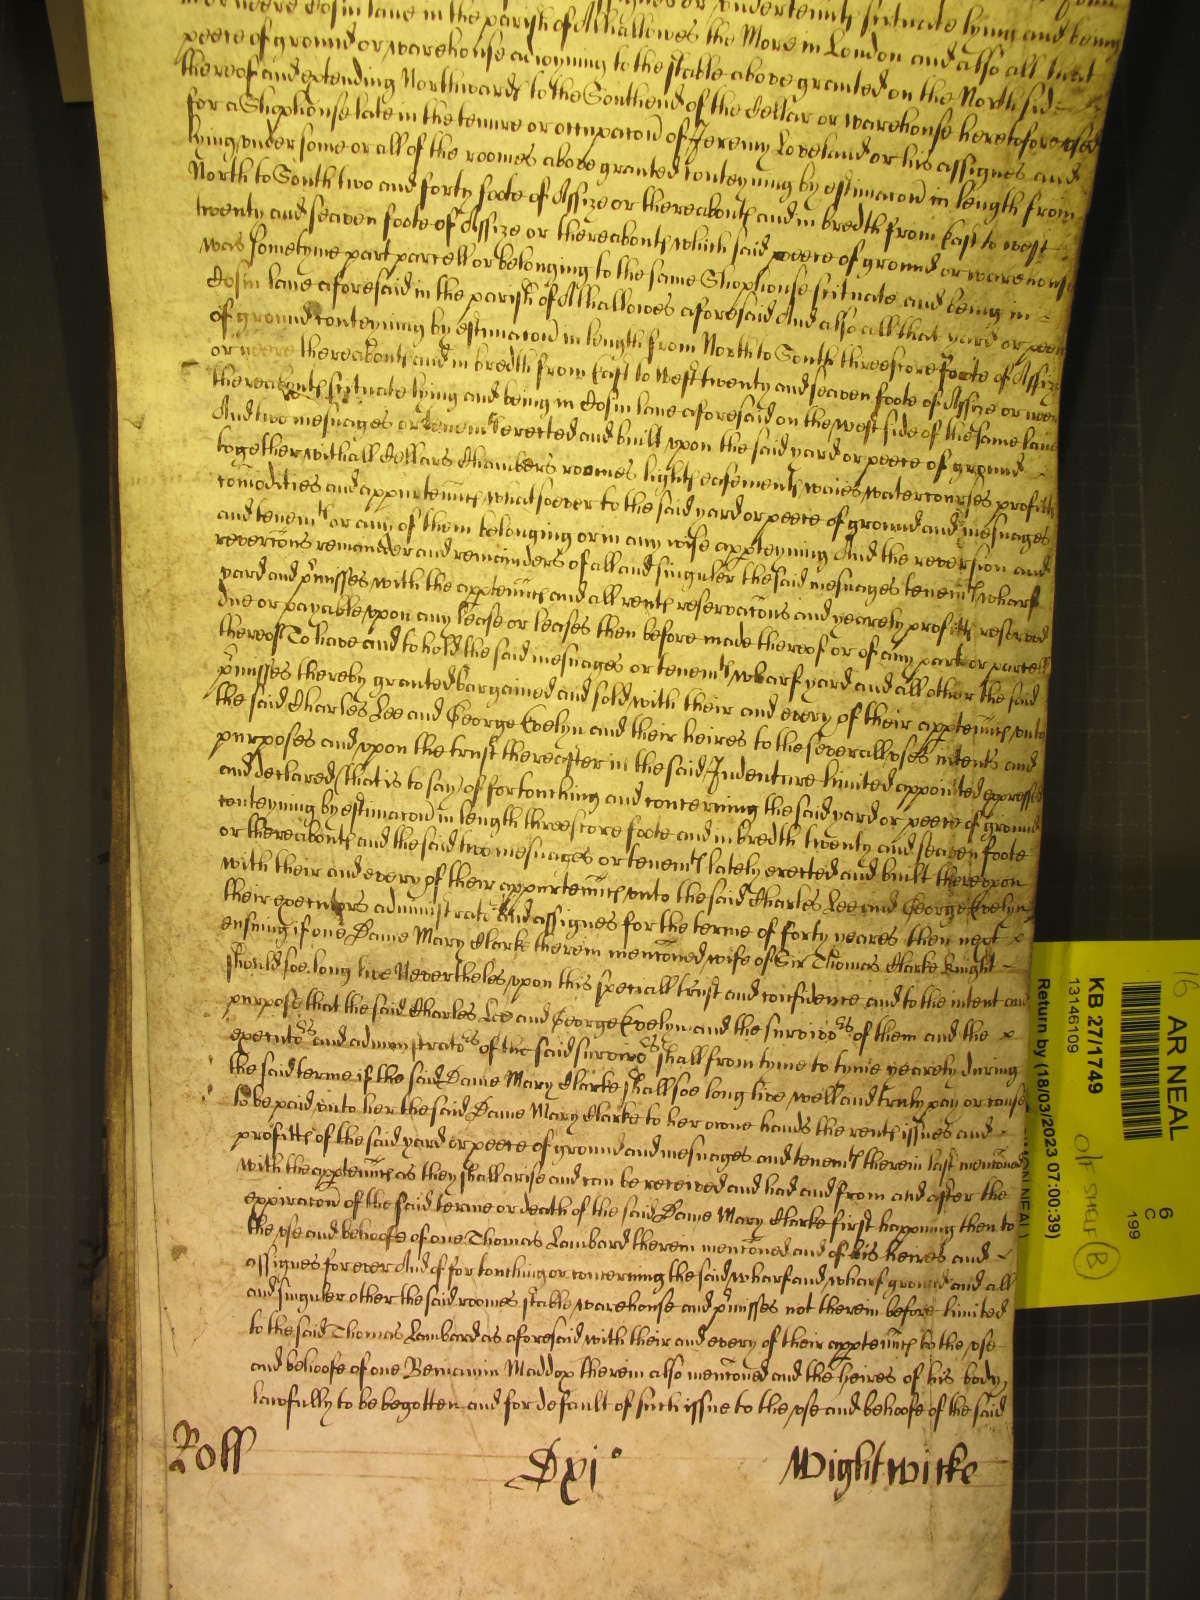 in or neere Cosin lane in the parish of Alhallowes the More in London and also all that
peece of ground or warehouse adioyning to the stable above granted on the North side
thereof and extending Northwards to the Southend of the Cellar or warehouse heretofore used
for a Shophouse late in the tenure or occupacon of Jeremy Loveland or his assignes and
lying under some or all of the roomes above granted conteyning by estimacon in length from
North to South two and forty foote of Assize or thereabouts and in bredth from East to west
twenty and seaven foote of Assize or thereabouts which said peece of ground or warehouse
was sometyme part parcell or belonging to the same Shophouse scituate and being in
Cosin lane aforesaid in the parish of Alhallowes aforesaid And also all that yard or peece
of ground conteyning by estimacon in length from North to South threescore foote of Assize
or neere thereabouts and in bredth from East to West twenty and seaven foote of Assize or neere
thereabouts scituate lying and being in Cosin lane aforesaid on the west side of the same lane
And two mesuages or tenemts erected and built upon the said yard or peece of ground
together with all Cellars Chambers roomes lights easements waies watercourses profitts
comodities and appurtenncs whatsoever to the said yard or peece of ground and mesuages
and tenemts or any of them belonging or in any wise appteyning And the reversion and
revercons remainder and remainders of all and singuler the said mesuages tenemts wharf
yard and pmisses with the apptenncs and all rents reservacons and yearely profitts reserved
due or payable upon any lease or leases then before made thereof or of any part or parcell
thereof To have and to hold the said mesuages or tenemts wharf yard and all other the said
pmisses thereby granted bargained and sold with their and every of their apptenncs unto
the said Charles Lee and George Evelyn and their heires to the severall uses intents and
purposes and upon the trust thereafter in the said Indenture limited appointed expressed
and declared (that is to say) of for touching and concerning the said yard or peece of ground
conteyning by estimacon in length threescore foote and in bredth twenty and seaven foote
or thereabouts and the said two mesuages or tenemts lately erected and built thereupon
with their and every of their appurtenncs unto the said Charles Lee and George Evelyn
their executors administrators and assignes for the terme of forty yeares then next
ensuing if one Dame Mary Clarke therein menconed wife of Sir Thomas Clarke knight
should soe long live Nevertheles upon this speciall trust and confidence and to the intent and
purpose that the said Charles Lee and George Evelyn and the survivors of them and the
executors and administrators of the said survivors shall from tyme to tyme yearely during
the said terme if the said Dame Mary Clarke shall soe long live well and truly pay or cause
to be paid unto her the said Dame Mary Clarke to her owne hands the rents issues and
profitts of the said yard or peece of ground and mesuages and tenemts therein last menconed
with the apptenncs as they shall arise and can be received and had and from and after the
expiracon of the said terme or death of the said Dame Mary Clarke first happning then to
the use and behoofe of one Thomas Lambard therein menconed and of his heires and
assignes for ever And of for touching or concerning the said wharf and wharf ground and all
and singuler other the said roomes stable warehouse and pmisses not therein before limited
to the said Thomas Lambard as aforesaid with their and every of their apptenncs to the use
and behoofe of one Beniamin Maddox therein also menconed and the heires of his body
lawfully to be begotten and for default of such issue to the use and behoofe of the said
Roll Dxi° Wightwicke
16 AR NEAL
KB 27/1749
13146109
Return by (18/03/2023 07:00:39)
6
C
199
O/F SHELF B